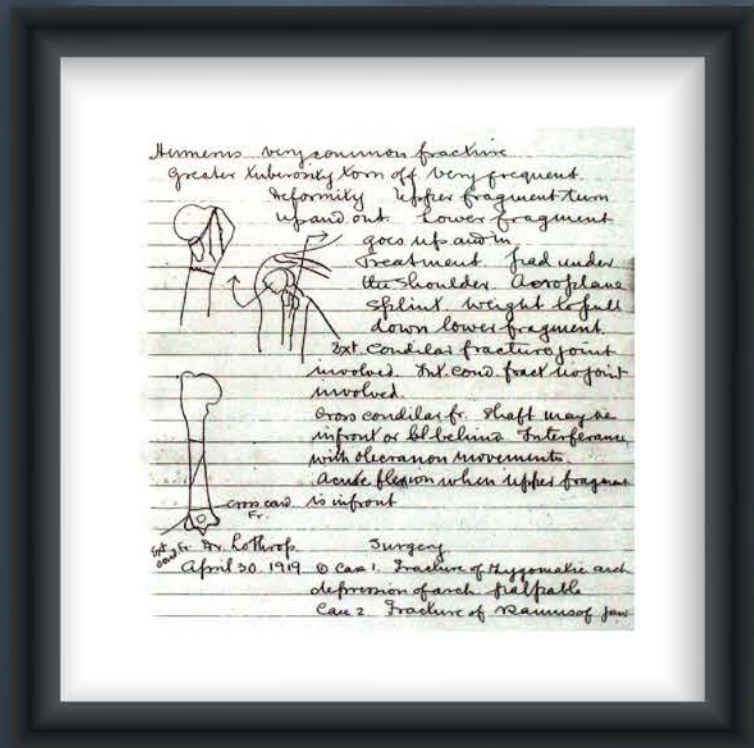 Humerus very common fracture
Greater tuberosity torn off very frequent.
Deformity Upper fragment turn
up and out. Lower fragment
goes up and in
Treatment. Pad under
the shoulder. Aeroplane
splint. Weight to pull
down lower fragment.
Ext. Condilar fracture joint
involved. Int. cond. fract no joint
involved.
Cross condilar fr. Shaft may be
infront or behind Interferance
with olecranon movements.
Acute flexion when upper fragment
is infront
cross cond
Fr.
Ext cond Fr.
Dr. Lothrop Surgery
April 30. 1919 Case 1. Fracture of Zygomatic arch
depression of arch palpable
Case 2. Fracture of Ramus of jaw